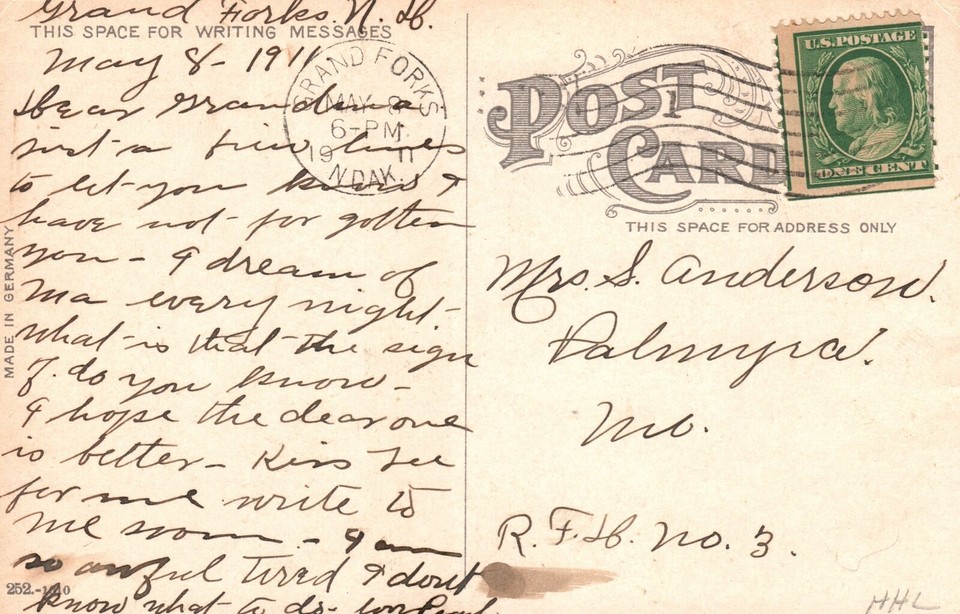 Grand Forks. N. D.
THIS SPACE FOR WRITING MESSAGES
May 8 - 1911
Dear Grandma
just a few lines
to let you know I
have not forgotten
you - I dream of
Ma every night -
what is that the sign
of. do you know -
I hope the dear one
is better - Kiss Lee
for me write to
me soon - I am
so awful tired I dont
know what to do -
MADE IN GERMANY
252.-1910
GRAND FORKS
MAY 8
6-PM
19 11
N.DAK.
POST CARD
U.S. POSTAGE
ONE CENT
THIS SPACE FOR ADDRESS ONLY
Mrs. S. Anderson.
Palmyra.
Mo.
R. F. D. No. 3.
HHL